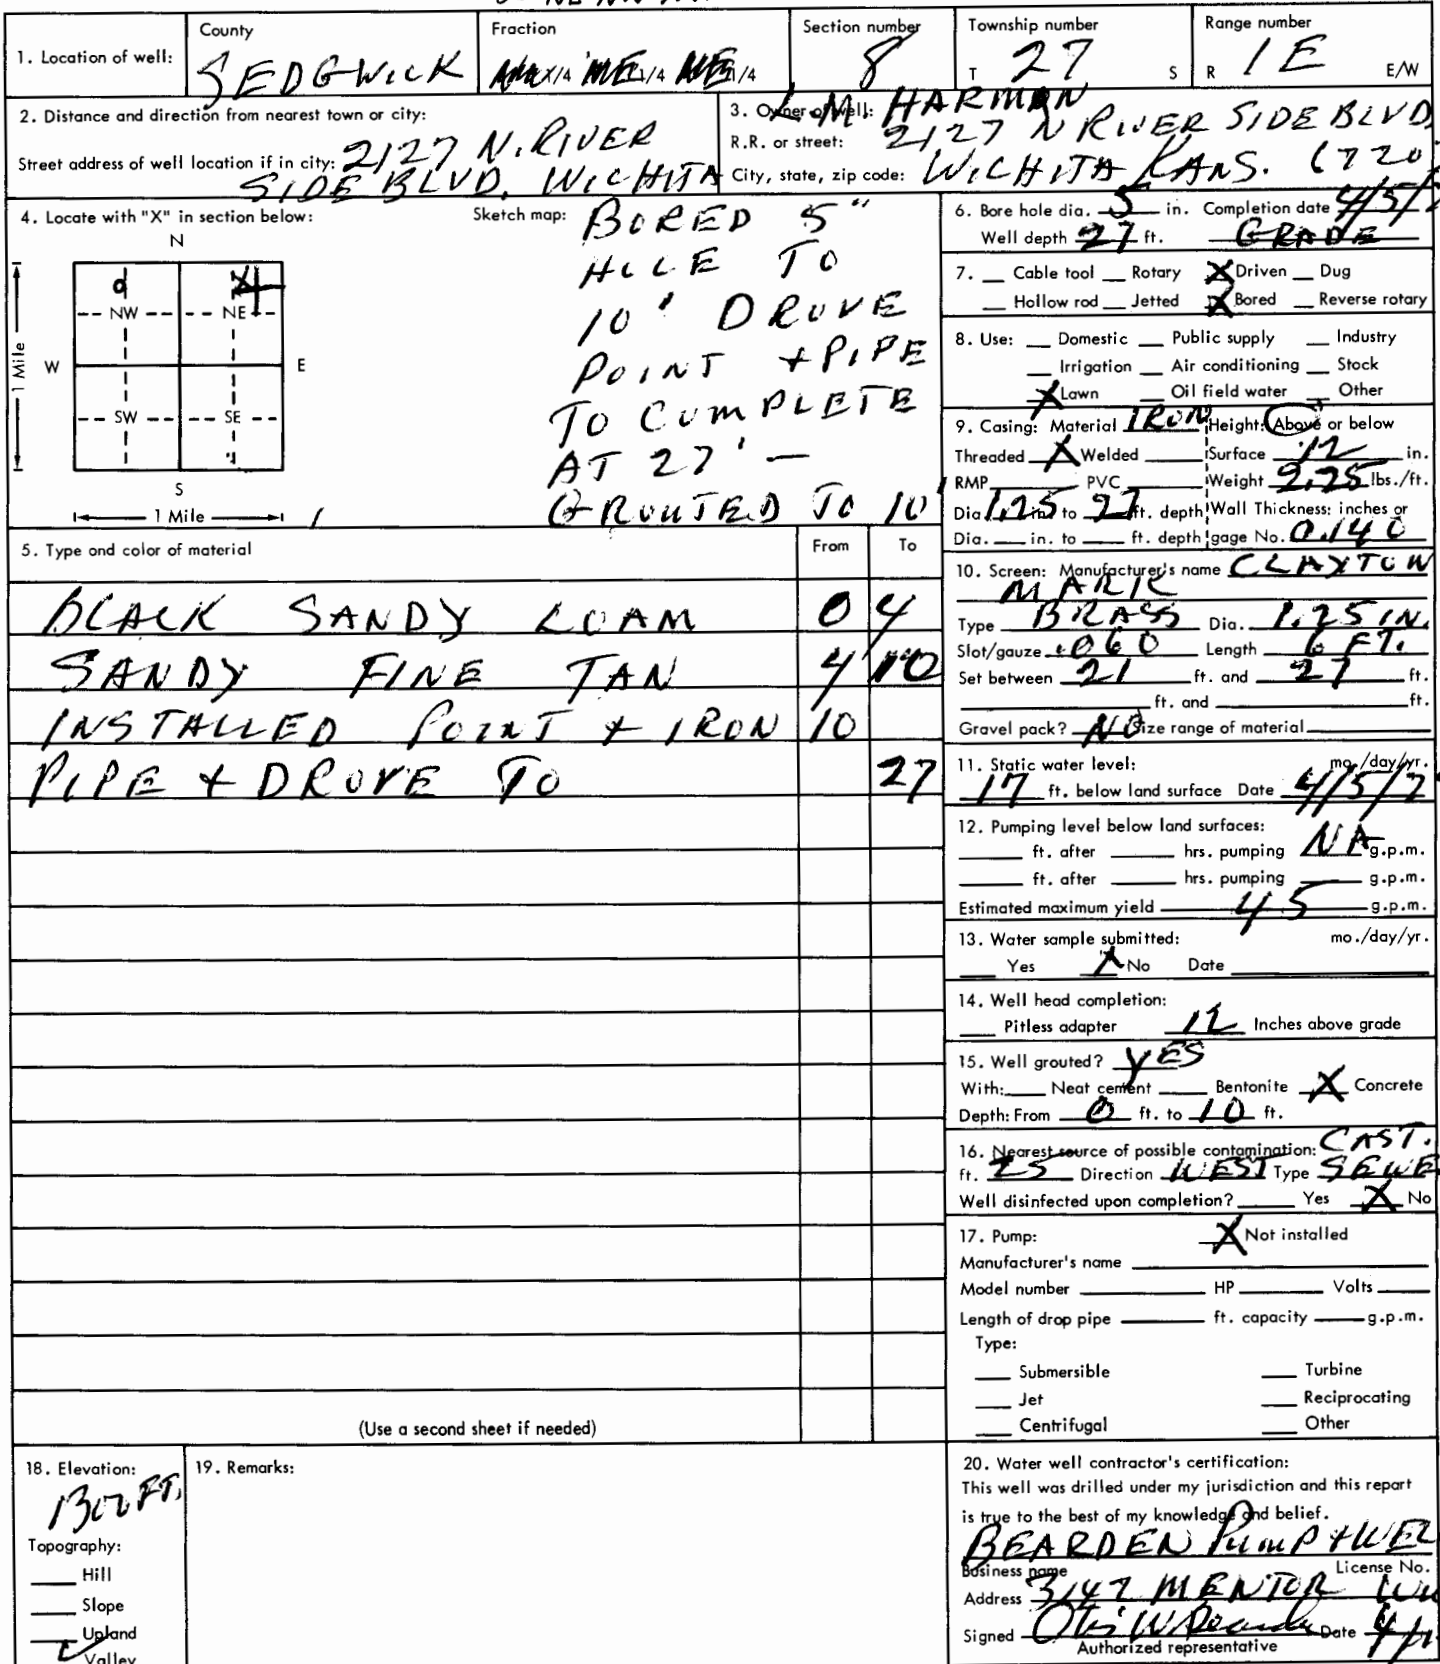 1. Location of well: County SEDGWICK Fraction 1/4 NE 1/4 NE 1/4 Section number 8 Township number T 27 S Range number R 1E E/W
2. Distance and direction from nearest town or city:
Street address of well location if in city: 2127 N. RIVER
SIDE BLVD. WICHITA
3. Owner of well: L.M. HARMAN
R.R. or street: 2127 N RIVER SIDE BLVD.
City, state, zip code: WICHITA KANS. 6720
4. Locate with "X" in section below:
N
NW NE
W E
1 Mile
SW SE
S
1 Mile
Sketch map: BORED 5"
HOLE TO
10' DROVE
POINT + PIPE
TO COMPLETE
AT 27' —
GROUTED TO 10'
5. Type and color of material From To
BLACK SANDY LOAM 0 4
SANDY FINE TAN 4 10
INSTALLED POINT + IRON 10
PIPE + DROVE TO 27
(Use a second sheet if needed)
6. Bore hole dia. 5 in. Completion date 4/5/
Well depth 27 ft. GRADE
7. Cable tool Rotary X Driven Dug
Hollow rod Jetted X Bored Reverse rotary
8. Use: Domestic Public supply Industry
Irrigation Air conditioning Stock
X Lawn Oil field water Other
9. Casing: Material IRON Height: Above or below
Threaded X Welded Surface 12 in.
RMP PVC Weight 2.25 lbs./ft.
Dia. 1.25 in. to 27 ft. depth Wall Thickness: inches or
Dia. in. to ft. depth gage No. 0.140
10. Screen: Manufacturer's name CLAYTON
MARK
Type BRASS Dia. 1.25 IN.
Slot/gauze .060 Length 6 FT.
Set between 21 ft. and 27 ft.
ft. and ft.
Gravel pack? NO Size range of material
11. Static water level: mo./day/yr.
17 ft. below land surface Date 4/5/7
12. Pumping level below land surfaces:
ft. after hrs. pumping NA g.p.m.
ft. after hrs. pumping g.p.m.
Estimated maximum yield 45 g.p.m.
13. Water sample submitted: mo./day/yr.
Yes X No Date
14. Well head completion:
Pitless adapter 12 Inches above grade
15. Well grouted? YES
With: Neat cement Bentonite X Concrete
Depth: From 0 ft. to 10 ft.
16. Nearest source of possible contamination: CAST.
ft. 25 Direction WEST Type SEWE
Well disinfected upon completion? Yes X No
17. Pump: X Not installed
Manufacturer's name
Model number HP Volts
Length of drop pipe ft. capacity g.p.m.
Type:
Submersible Turbine
Jet Reciprocating
Centrifugal Other
18. Elevation:
1300 FT.
Topography:
Hill
Slope
Upland
Valley
19. Remarks:
20. Water well contractor's certification:
This well was drilled under my jurisdiction and this report
is true to the best of my knowledge and belief.
BEARDEN PUMP + WEL
Business name License No.
Address 3147 MENTOR
Signed Otis W Bearden Date 4/
Authorized representative